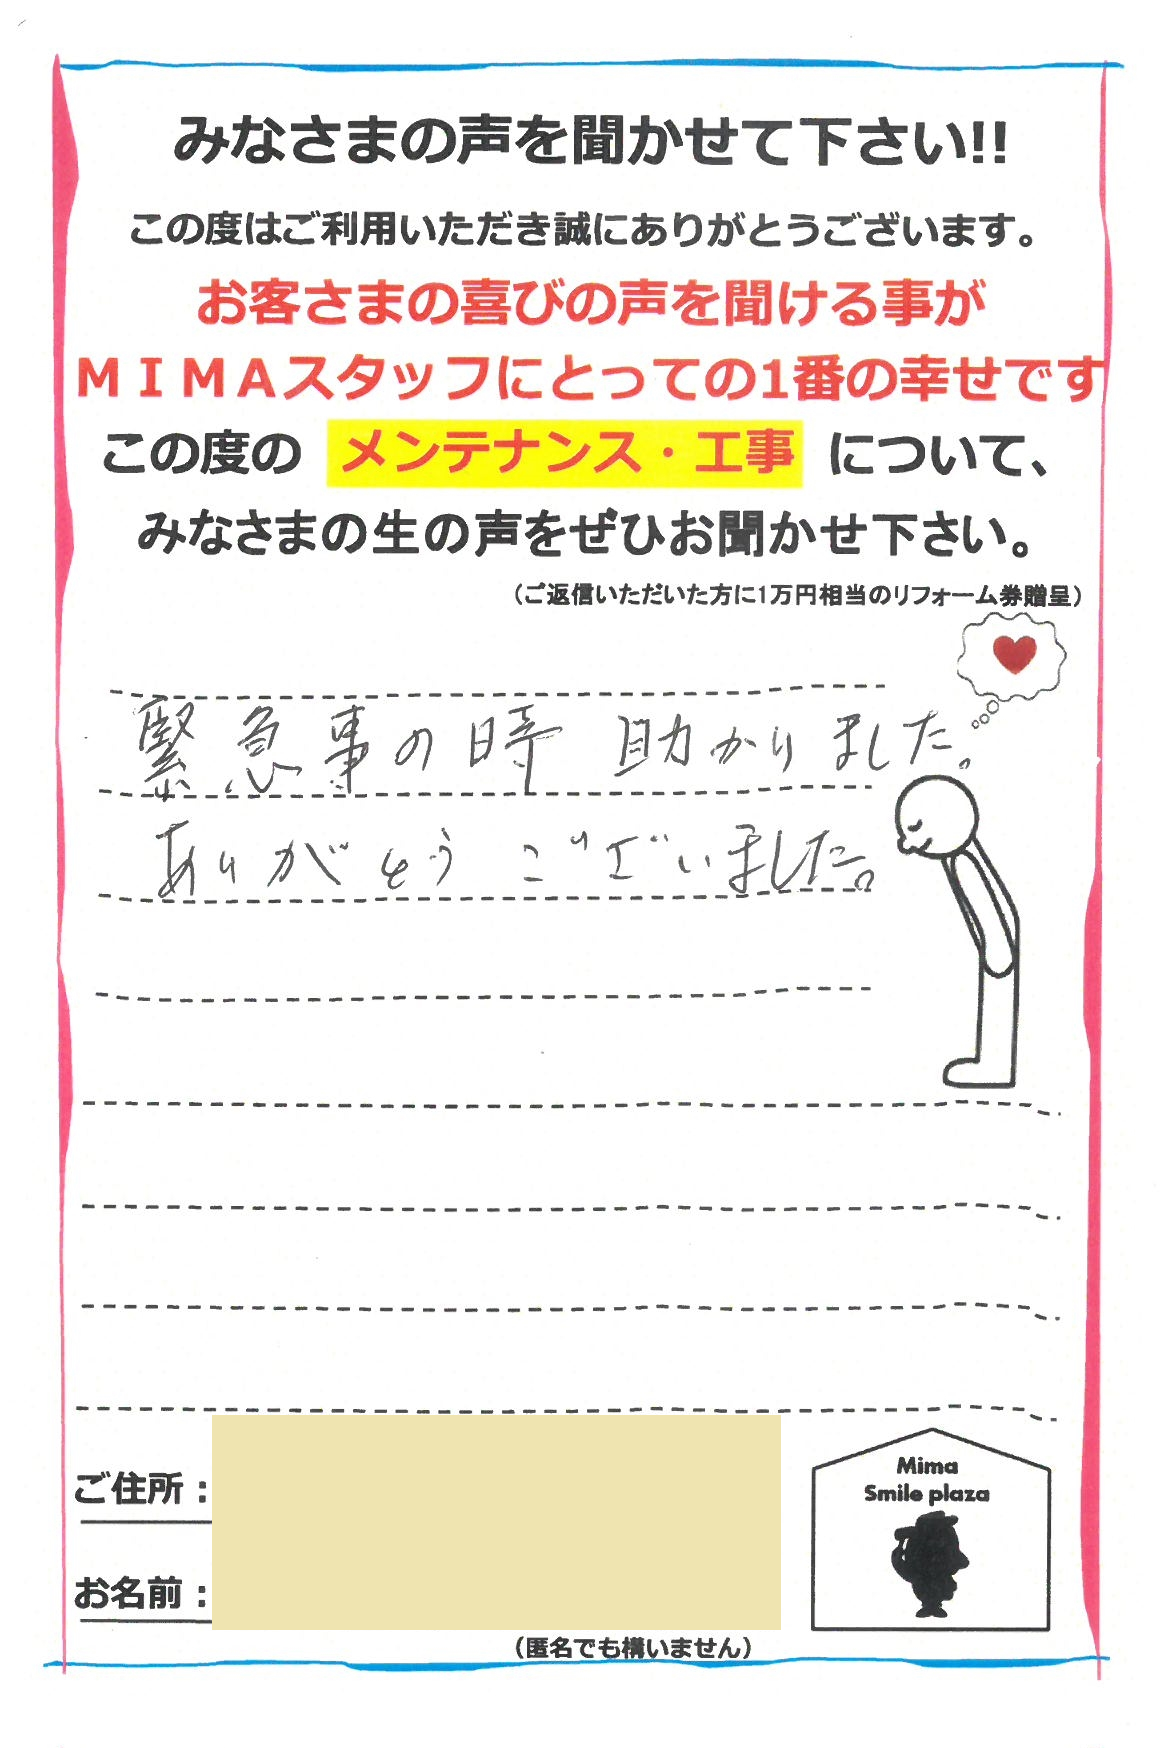 みなさまの声を聞かせて下さい!!
この度はご利用いただき誠にありがとうございます。
お客さまの喜びの声を聞ける事が
ＭＩＭＡスタッフにとっての1番の幸せです
この度の メンテナンス・工事 について、
みなさまの生の声をぜひお聞かせ下さい。
（ご返信いただいた方に1万円相当のリフォーム券贈呈）
緊急事の時 助かりました。
ありがとうございました。
ご住所：
お名前：
（匿名でも構いません）
Mima
Smile plaza